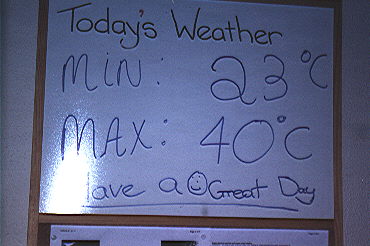 Today's Weather
MIN: 23°C
MAX: 40°C
Have a ☺ Great Day